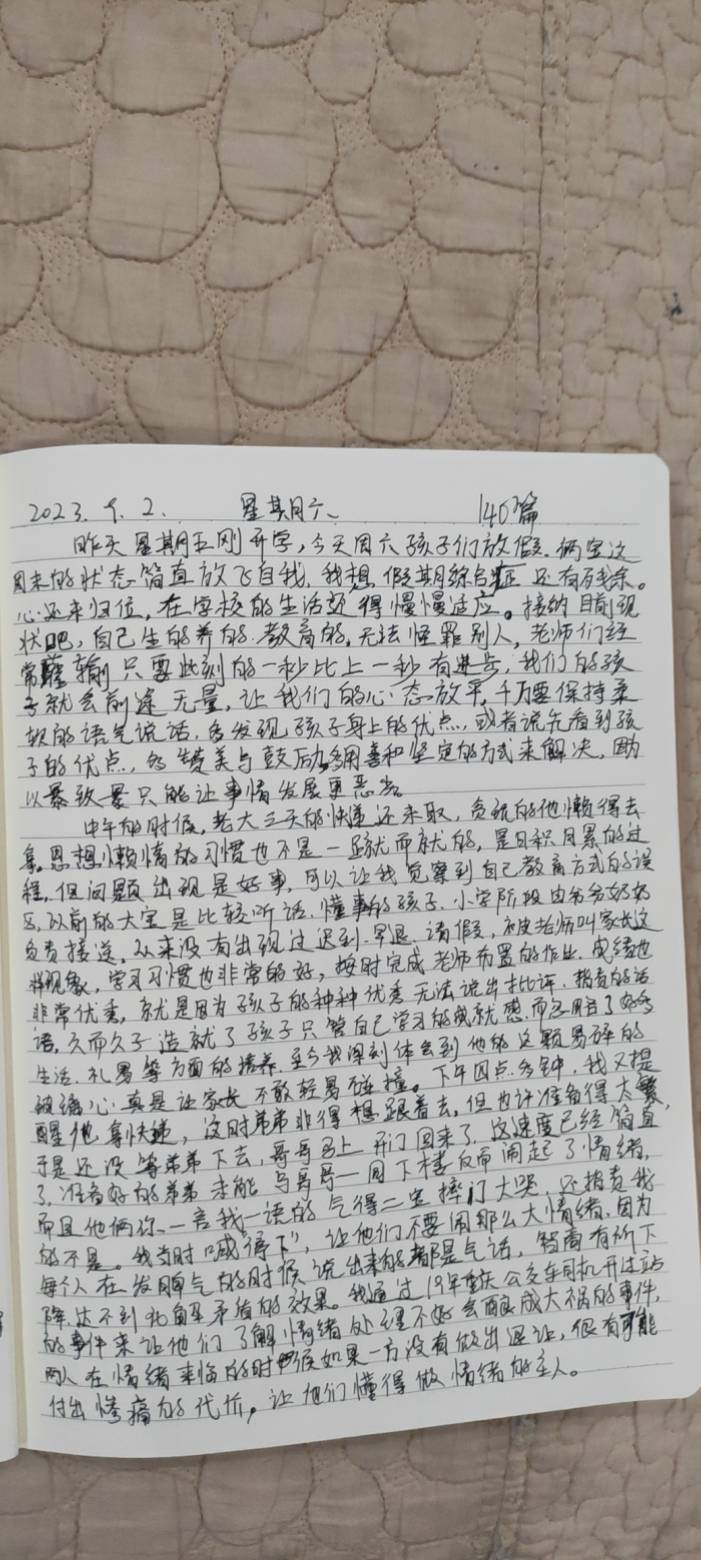 2023. 9. 2. 星期六、 140篇
昨天星期五刚开学，今天周六孩子们放假。俩宝这
周末的状态简直放飞自我，我想假期综合症还有残余。
心还未归位，在学校的生活还得慢慢适应。接纳目前现
状吧，自己生的养的.教育的，无法怪罪别人，老师们经
常 只要此刻的一秒比上一秒有进步，我们的孩
子就会前途无量，让我们的心态放平，千万要保持柔
软的语气说话，多发现孩子身上的优点，或者说先看到孩
子的优点，多赞美与鼓励多用善和坚定的方式来解决，因为
以暴致暴只能让事情发展更恶劣
中午的时候，老大三天的快递还未取，贪玩的他懒得去
拿，思想懒惰的习惯也不是一蹴而就的，是日积月累的过
程，但问题出现是好事，可以让我觉察到自己教育方式的误
区，以前的大宝是比较听话.懂事的孩子.小学阶段由爷爷奶奶
负责接送，从来没有出现过迟到.早退.请假，被老师叫家长这
样现象，学习习惯也非常的好，按时完成老师布置的作业.成绩也
非常优秀，就是因为孩子的种种优秀无法说出批评.指责的话
语，久而久子造就了孩子只管自己学习的成就感.而忽略了好多
生活.礼易等方面的培养.至今我深刻体会到他的这颗易碎的
玻璃心真是让家长不敢轻易碰撞。下午四点多钟，我又提
醒他拿快递，这时弟弟非得想跟着去，但也许准备得太繁，
于是还没等弟弟下去，哥哥马上开门回来了.这速度已经简直
了，准备好的弟弟未能与哥哥一同下楼反而闹起了情绪，
而且他俩你一言我一语的气得二宝摔门大哭，还指责我
的不是。我当时喊“停下”，让他们不要闹那么大情绪，因为
每个人在发脾气的时候说出来的都是气话，智商有所下
降，达不到化解矛盾的效果。我通过19年重庆公交车司机开过站
的事件来让他们了解情绪处理不好会酿成大祸的事件，
两人在情绪来临的时候如果一方没有做出退让，很有可能
付出惨痛的代价，让他们懂得做情绪的主人。